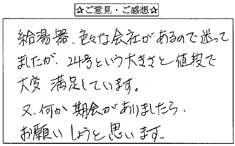 ☆ご意見・ご感想☆
給湯器、色々な会社があるので迷って
ましたが、24号という大きさと値段で
大変満足しています。
又、何か期会がありましたら、
お願いしようと思います。